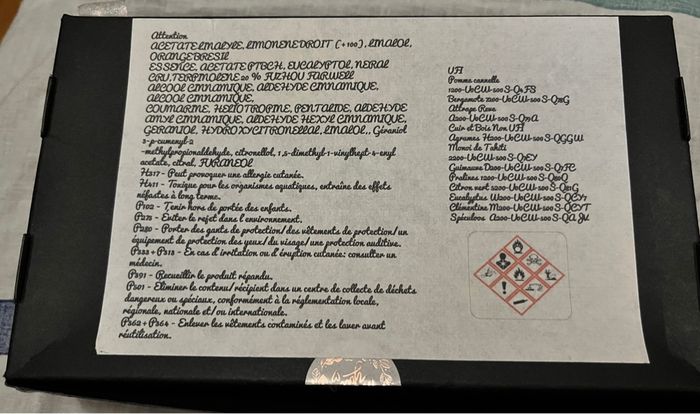 Attention
ACETATE LINALYLE, LIMONENE DROIT (+100), LINALOL,
ORANGE BRESIL
ESSENCE, ACETATE PTBCH, EUCALYPTOL, NERAL
CRU, TERPINOLENE 20 % FUZHOU FARWELL
ALCOOL CINNAMIQUE, ALDEHYDE CINNAMIQUE,
ALCOOL CINNAMIQUE,
COUMARINE, HELIOTROPINE, PENTALIDE, ALDEHYDE
AMYL CINNAMIQUE, ALDEHYDE HEXYL CINNAMIQUE,
GERANIOL, HYDROXYCITRONELLAL, LINALOL,, Géraniol
3-p-cumenyl-2
-methylpropionaldehyde, citronellol, 1,5-dimethyl-1-vinylhept-4-enyl
acetate, citral, FURANEOL
H317 - Peut provoquer une allergie cutanée.
H411 - Toxique pour les organismes aquatiques, entraîne des effets
néfastes à long terme.
P102 - Tenir hors de portée des enfants.
P273 - Eviter le rejet dans l'environnement.
P280 - Porter des gants de protection/des vêtements de protection/un
équipement de protection des yeux/ du visage/ une protection auditive.
P333 + P313 - En cas d'irritation ou d'éruption cutanée: consulter un
médecin.
P391 - Recueillir le produit répandu.
P501 - Eliminer le contenu/récipient dans un centre de collecte de déchets
dangereux ou spéciaux, conformément à la réglementation locale,
régionale, nationale et/ou internationale.
P362 + P364 - Enlever les vêtements contaminés et les laver avant
réutilisation.
UFI
Pomme cannelle
Bergamote
Attrape Reve
Cuir et Bois Non UFI
Agrumes
Monoi de Tahiti
Guimauve
Pralines
Citron vert
Eucalyptus
Clémentine
Spéculoos